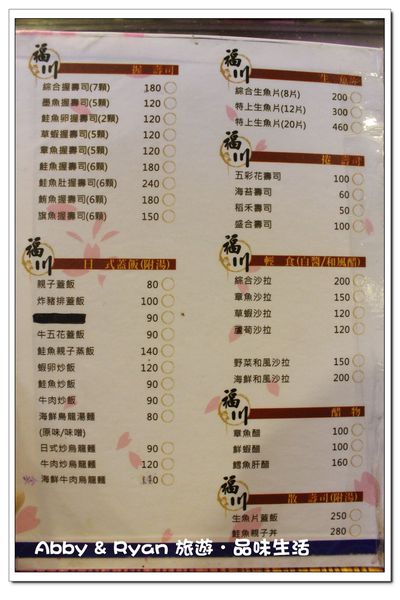 福川
握 壽司
綜合握壽司(7顆) 180
墨魚握壽司(5顆) 120
鮭魚卵握壽司(2顆) 120
草蝦握壽司(5顆) 120
章魚握壽司(5顆) 120
鮭魚握壽司(6顆) 180
鮭魚肚握壽司(6顆) 240
鮪魚握壽司(6顆) 180
旗魚握壽司(6顆) 150
福川
日 式蓋飯(附湯)
親子蓋飯 80
炸豬排蓋飯 100
90
牛五花蓋飯 90
鮭魚親子蒸飯 140
蝦卵炒飯 90
鮭魚炒飯 90
牛肉炒飯 90
海鮮烏龍湯麵 80
(原味/味噌)
日式炒烏龍麵 90
牛肉炒烏龍麵 120
海鮮牛肉烏龍麵
福川
生 魚
綜合生魚片(8片) 200
特上生魚片(12片) 300
特上生魚片(20片) 460
福川
捲 壽司
五彩花壽司 100
海苔壽司 60
稻禾壽司 50
盛合壽司 100
福川
輕 食(白醬/和風醋)
綜合沙拉 200
章魚沙拉 150
草蝦沙拉 120
蘆筍沙拉 120
野菜和風沙拉 150
海鮮和風沙拉 200
福川
醋 物
章魚醋 100
鮮蝦醋 100
鱈魚肝醋 160
福川
散 壽司(附湯)
生魚片蓋飯 250
鮭魚親子丼 280
Abby & Ryan 旅遊・品味生活